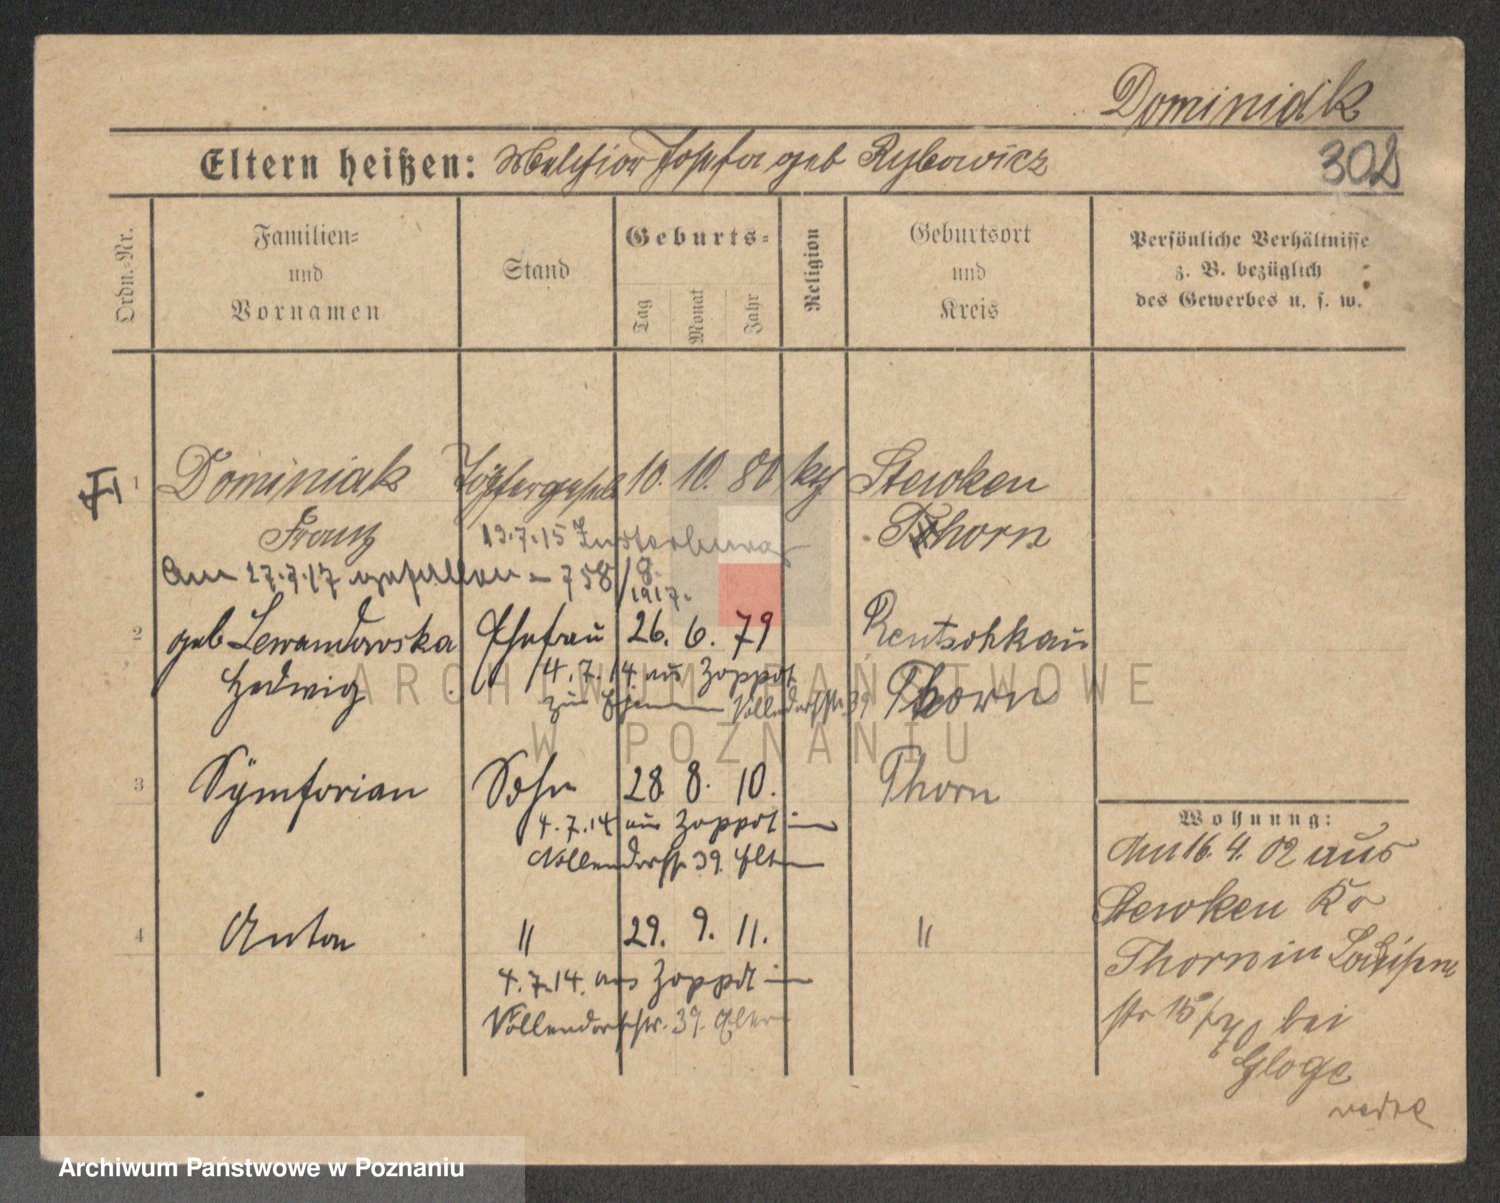 Dominiak
Eltern heißen: Melchior Josefa geb Rybowicz
302
Ordn.-Nr.
Familien-
und
Vornamen
Stand
Geburts-
Tag
Monat
Jahr
Religion
Geburtsort
und
Kreis
Persönliche Verhältnisse
z. B. bezüglich
des Gewerbes u. s. w.
1 Dominiak Töpfergesell 10. 10. 80 kg Stewken
Franz 13.7.15 Insterburg Thorn
Am 27.7.17 gefallen - 758/8.
1917.
2 geb Lewandowska Ehefrau 26. 6. 79 Rentschkau
Hedwig 4.7.14 aus Zoppot Thorn
zum Vollendorfstr. 39
3 Symforian Sohn 28. 8. 10. Thorn
4.7.14 aus Zoppot in
Nollendorfstr 39. Eltern
4 Anton " 29. 9. 11. "
4.7.14. aus Zoppot in
Nollendorfstr. 39. Eltern
Wohnung:
Am 16. 4. 02 aus
Stewken Kr
Thorn in Louisen
str 15/70 bei
Gloge
ARCHIWUM PAŃSTWOWE
W POZNANIU
Archiwum Państwowe w Poznaniu